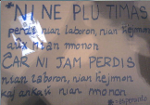 "NI NE PLU TIMAS
perdi nian laboron, nian hejmon
aŭ nian monon
ĈAR NI JAM PERDIS
nian laboron, nian hejmon
kaj ankaŭ nian monon